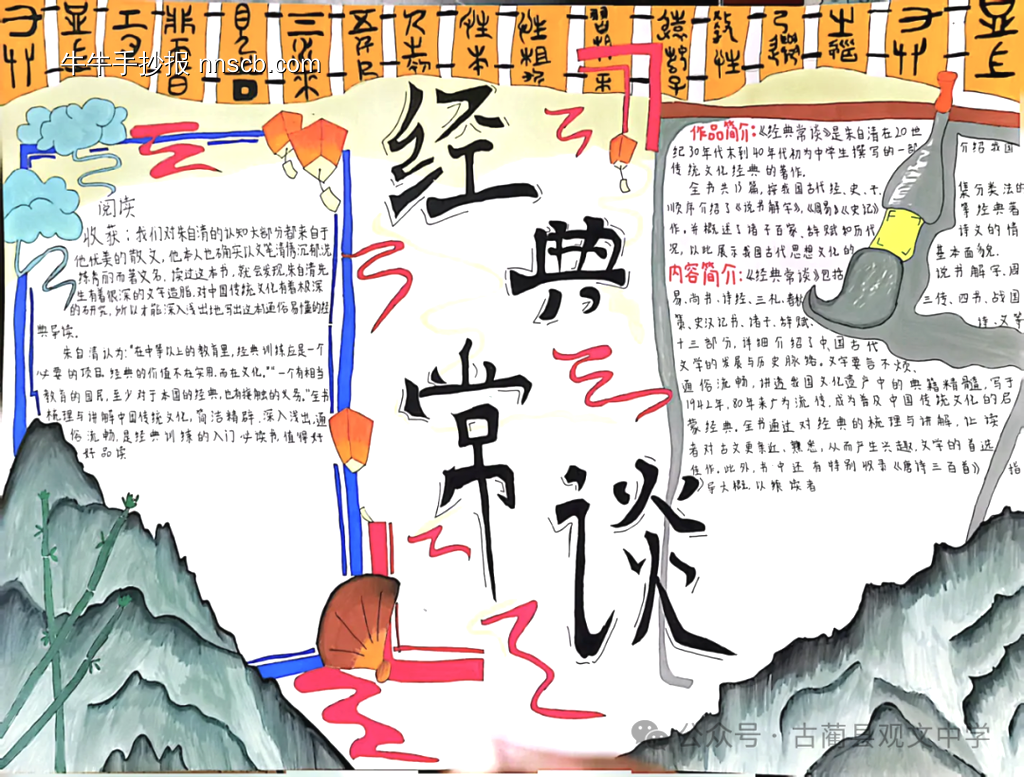 牛牛手抄报 nnscb.com
经典常谈
阅读
收获：我们对朱自清的认知大部分都来自于
他优美的散文，他本人也确实以文笔清隽沉郁、洗
练秀丽而著文名，读过这本书，就会发现，朱自清先
生有着很深的文字造脂，对中国传统文化有着极深
的研究，所以才能深入浅出地写出这本通俗易懂的经
典导读。
朱自清认为："在中等以上的教育里，经典训练应是一个
必要的项目，经典的价值不在实用，而在文化。""一个有相当
教育的国民，至少对于本国的经典，也有接触的义务。"全书
梳理与讲解中国传统文化，简洁精辟、深入浅出，通
俗流畅，是经典训练的入门必读书值得好
好品读
作品简介：《经典常谈》是朱自清在20世
纪30年代末到40年代初为中学生撰写的一部 介绍我国
传统文化经典的著作。
全书共13篇，按我国古代经、史、子、 集分类法的
顺序介绍了《说书解字》、《周易》《史记》 等经典著
作，并概述了诸子百家、辞赋和历代 诗文的情
况，以此展示我国古代思想文化的 基本面貌
内容简介：《经典常谈》包括 说书解字、周
易、尚书、诗经、三礼、春秋 三传、四书、战国
策、史汉记书、诸子、辞赋、 诗、文等
十三部分，详细介绍了中国古代
文学的发展与历史脉络。文字要言不烦、
通俗流畅，讲透我国文化遗产中的典籍精髓，写于
1942年，80年来广为流传，成为普及中国传统文化的启
蒙经典。全书通过对经典的梳理与讲解，让读
者对古文更亲近、熟悉，从而产生兴趣，文学的首选
佳作。此外，书中还有特别收录《唐诗三百首》 指
导大概，以飨读者
公众号·古蔺县观文中学